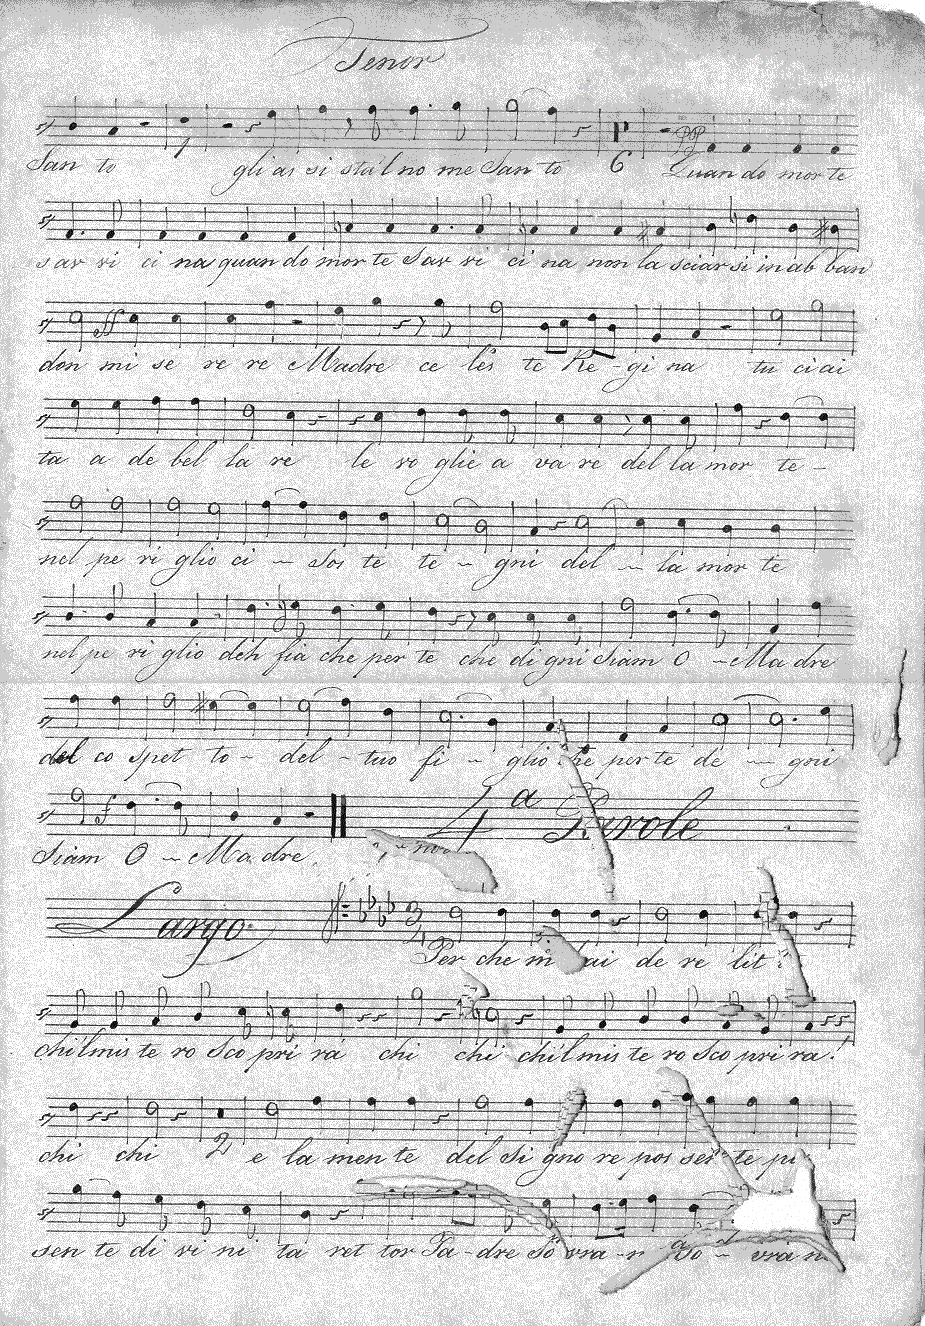 Tenor
San to gli as si sta'l no me San to 6 PP Quan do mor te
sav vi ci na quan do mor te Sav vi ci na non la sciar si in ab ban
don ff mi se re re Madre ce les te Re - gi na tu ci ai
ta a de bel la re le vo glie a va re del la mor te -
nel pe ri glio ci - Sos te te - gni del - la mor te
nel pe ri glio deh fia che per te che di gni Siam O - Ma dre
del co spet to - del - tuo fi - glio che per te de - gni
f Siam O - Ma dre 4a Parole
Largo 3 4 Per che m' hai de re lit
chi'l mis te ro Sco pri ra chi chi chi'l mis te ro Sco pri ra!
chi chi 2 e la men te del Si gno re pos ser te
sen te di vi ni ta ret tor Pa - dre So vra - n So - vra n